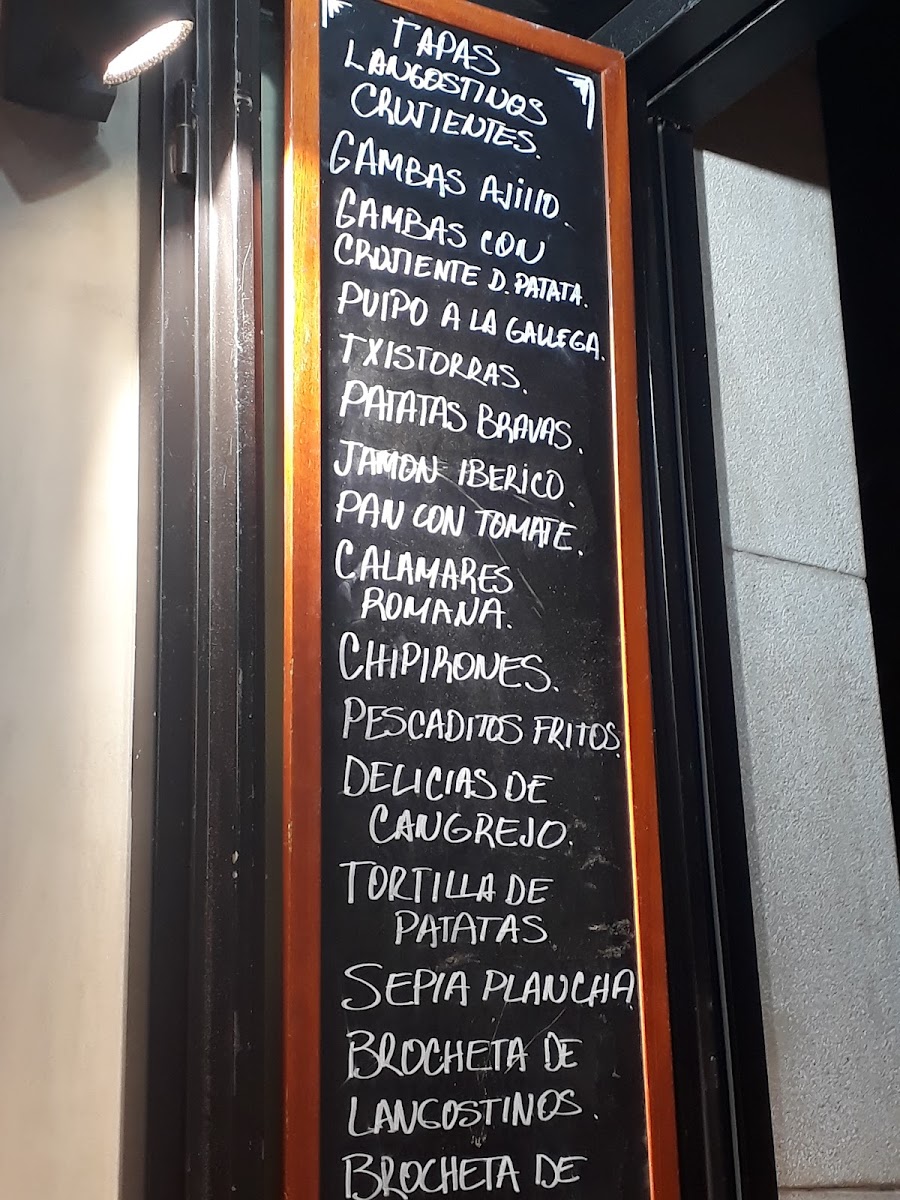 TAPAS
LANGOSTINOS
CRUJIENTES.
GAMBAS AJILLO.
GAMBAS CON
CRUJIENTE D. PATATA.
PULPO A LA GALLEGA.
TXISTORRAS.
PATATAS BRAVAS.
JAMON IBERICO.
PAN CON TOMATE.
CALAMARES
ROMANA.
CHIPIRONES.
PESCADITOS FRITOS.
DELICIAS DE
CANGREJO.
TORTILLA DE
PATATAS
SEPIA PLANCHA
BROCHETA DE
LANGOSTINOS.
BROCHETA DE